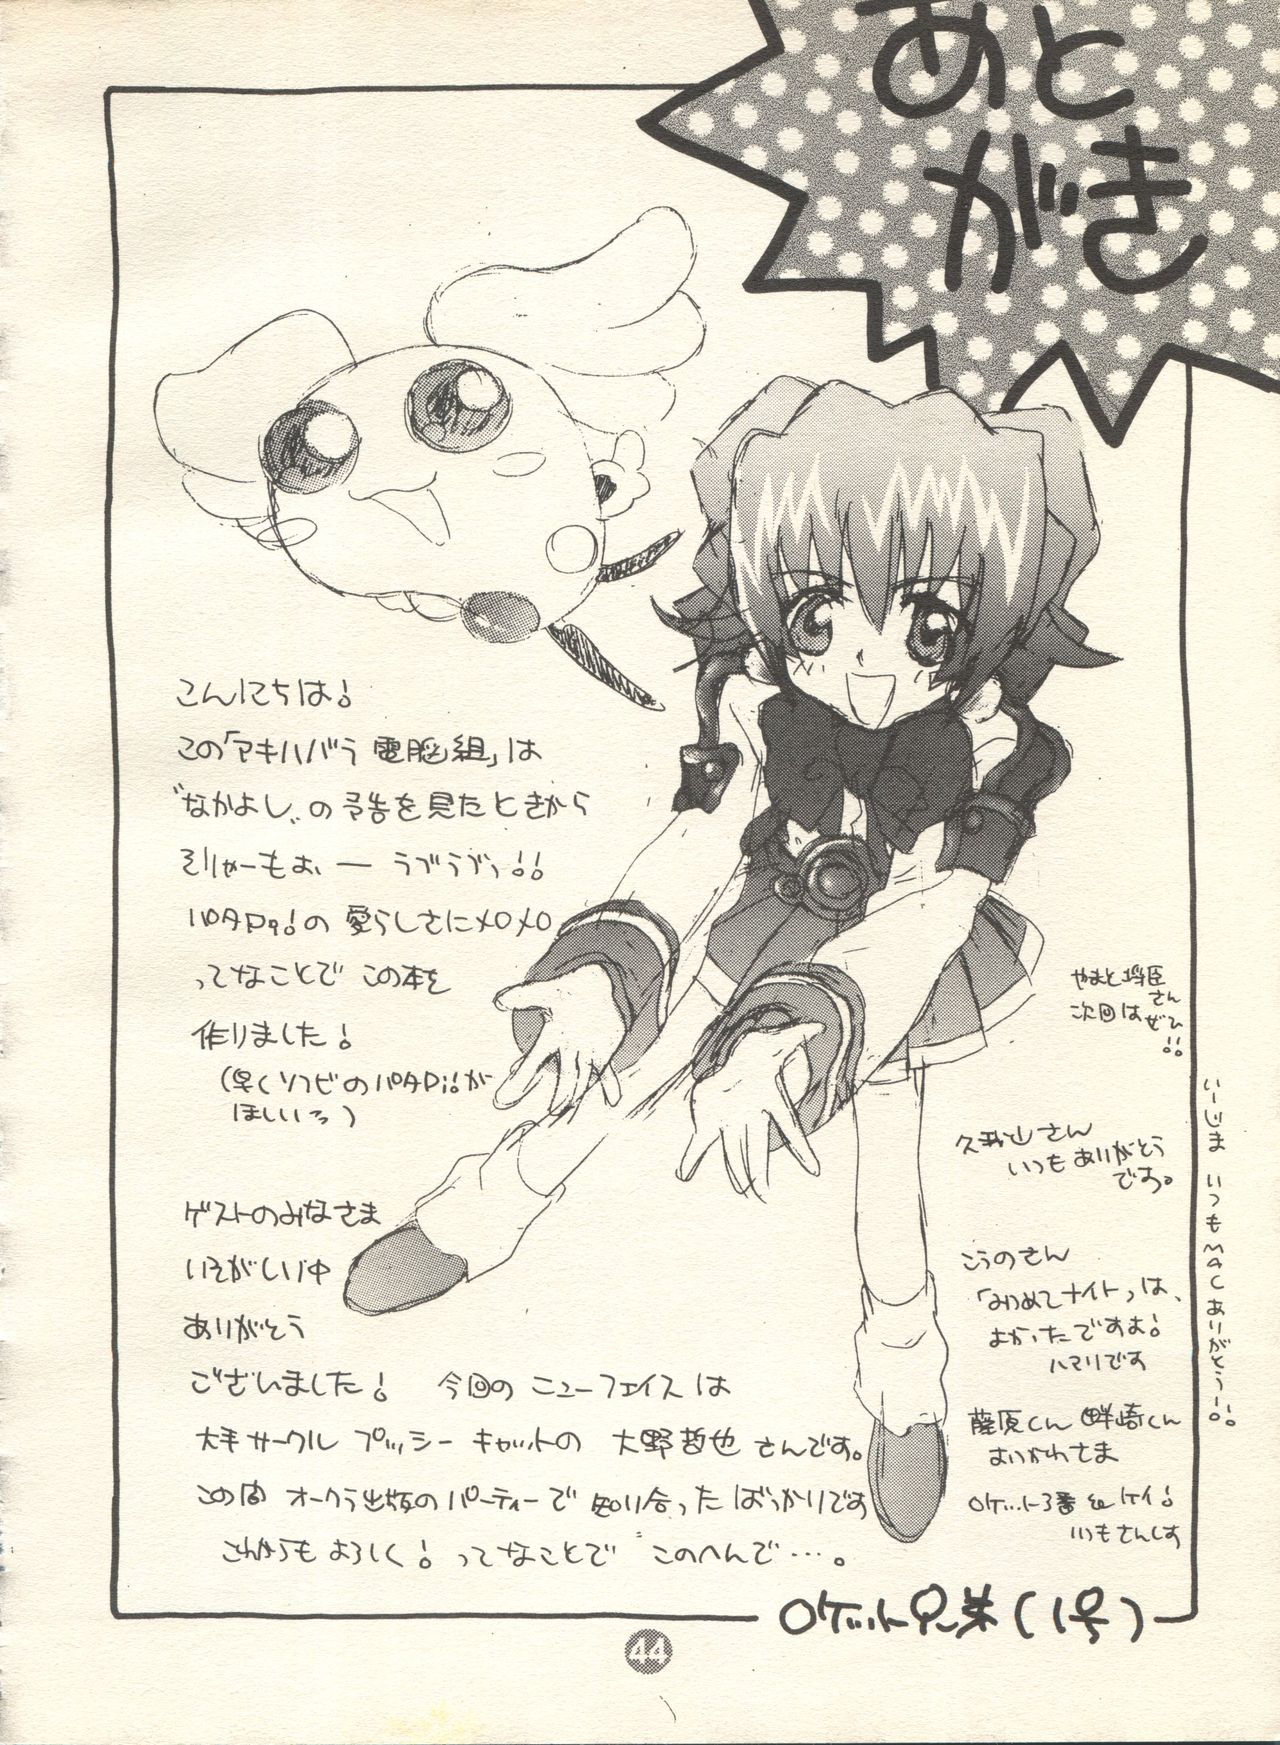 あと
がき
こんにちは!
この「アキハバラ電脳組」は
"なかよし"の予告を見たときから
そりゃーもぉ、ー らぶらぶっ!!
パタPi!の愛らしさにメロメロ
ってなことで この本を
作りました!
(早くソフビのパタPi!が
ほしいっ)
ゲストのみなさま
いそがしい中
ありがとう
ございました! 今回の ニューフェイスは
大手サークル プッシーキャットの 大野哲也さんです。
この間 オークラ出版のパーティーで 知り合ったばっかりです
これからもよろしく! ってなことで このへんで…。
やまと将臣さん
次回はぜひ!!
いーじま いつもMACありがとうー!!
久我山さん
いつもありがとう
です。
こうのさん
「みつめてナイト」は、
よかったですよ!
ハマリです
藤原くん 畔崎くん
おいかわさま
ロケット3番 ケイ!
いつもさんしす
ロケット兄弟(1号)
44